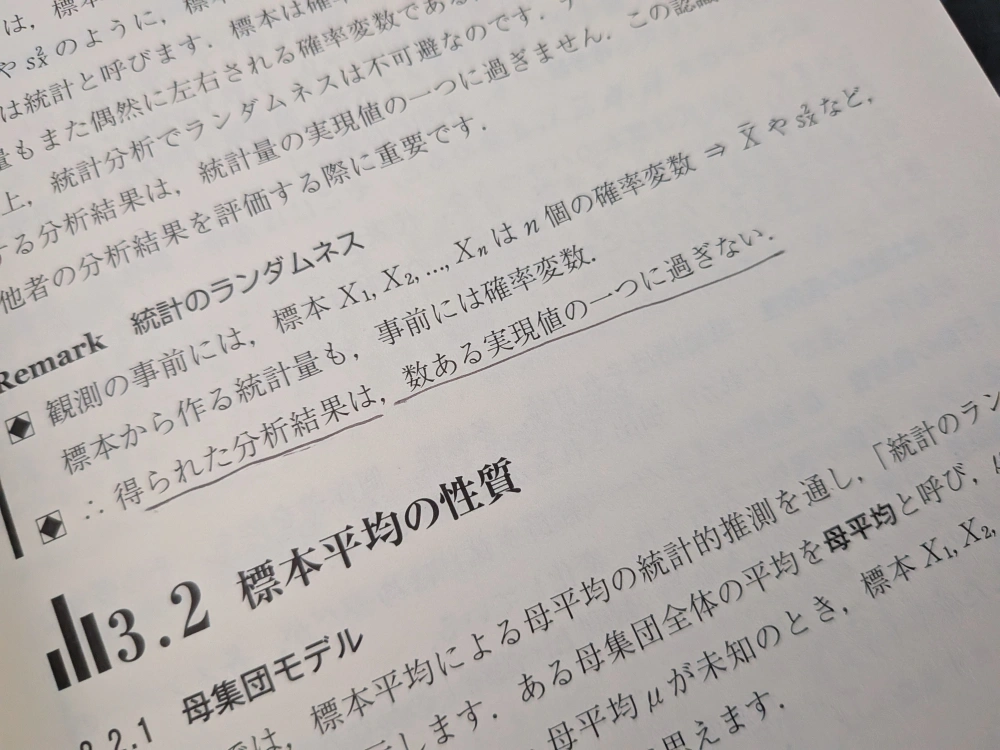 は，標本
や s²x のように，標本
は統計と呼びます．標本は確率
量もまた偶然に左右される確率変数である
上，統計分析でランダムネスは不可避なのです．
する分析結果は，統計量の実現値の一つに過ぎません．この認識
他者の分析結果を評価する際に重要です．
Remark 統計のランダムネス
観測の事前には，標本 X₁, X₂, ..., Xₙ は n 個の確率変数 ⇒ X̄ や s²x など，
標本から作る統計量も，事前には確率変数．
∴ 得られた分析結果は，数ある実現値の一つに過ぎない．
3.2 標本平均の性質
2.1 母集団モデル
では，標本平均による母平均の統計的推測を通し，「統計のラン
します．ある母集団全体の平均を母平均と呼び，μ
母平均 μ が未知のとき，標本 X₁, X₂,
思えます．